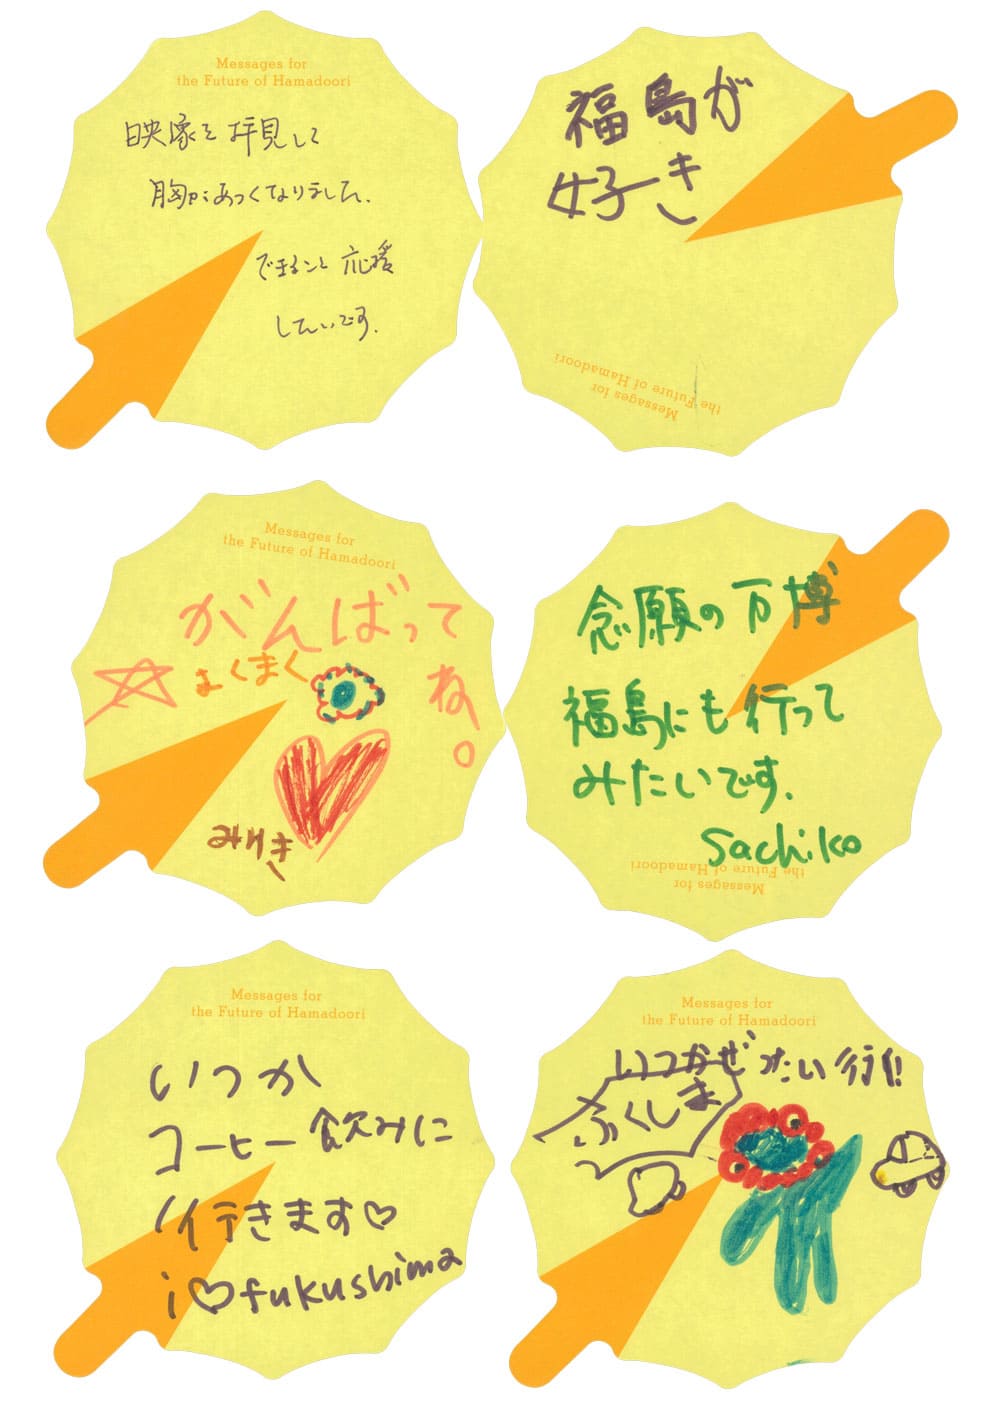 Messages for
the Future of Hamadoori
映像を拝見して
胸があつくなりました.
できること 応援
したいです.
福島が
好き
Messages for
the Future of Hamadoori
Messages for
the Future of Hamadoori
がんばって
ね。
まくまく
みゆき
念願の万博
福島にも行って
みたいです.
Sachiko
Messages for
the Future of Hamadoori
Messages for
the Future of Hamadoori
いつか
コーヒー飲みに
行きます♡
i♡fukushima
Messages for
the Future of Hamadoori
いつかぜったい行く!!
ふくしま